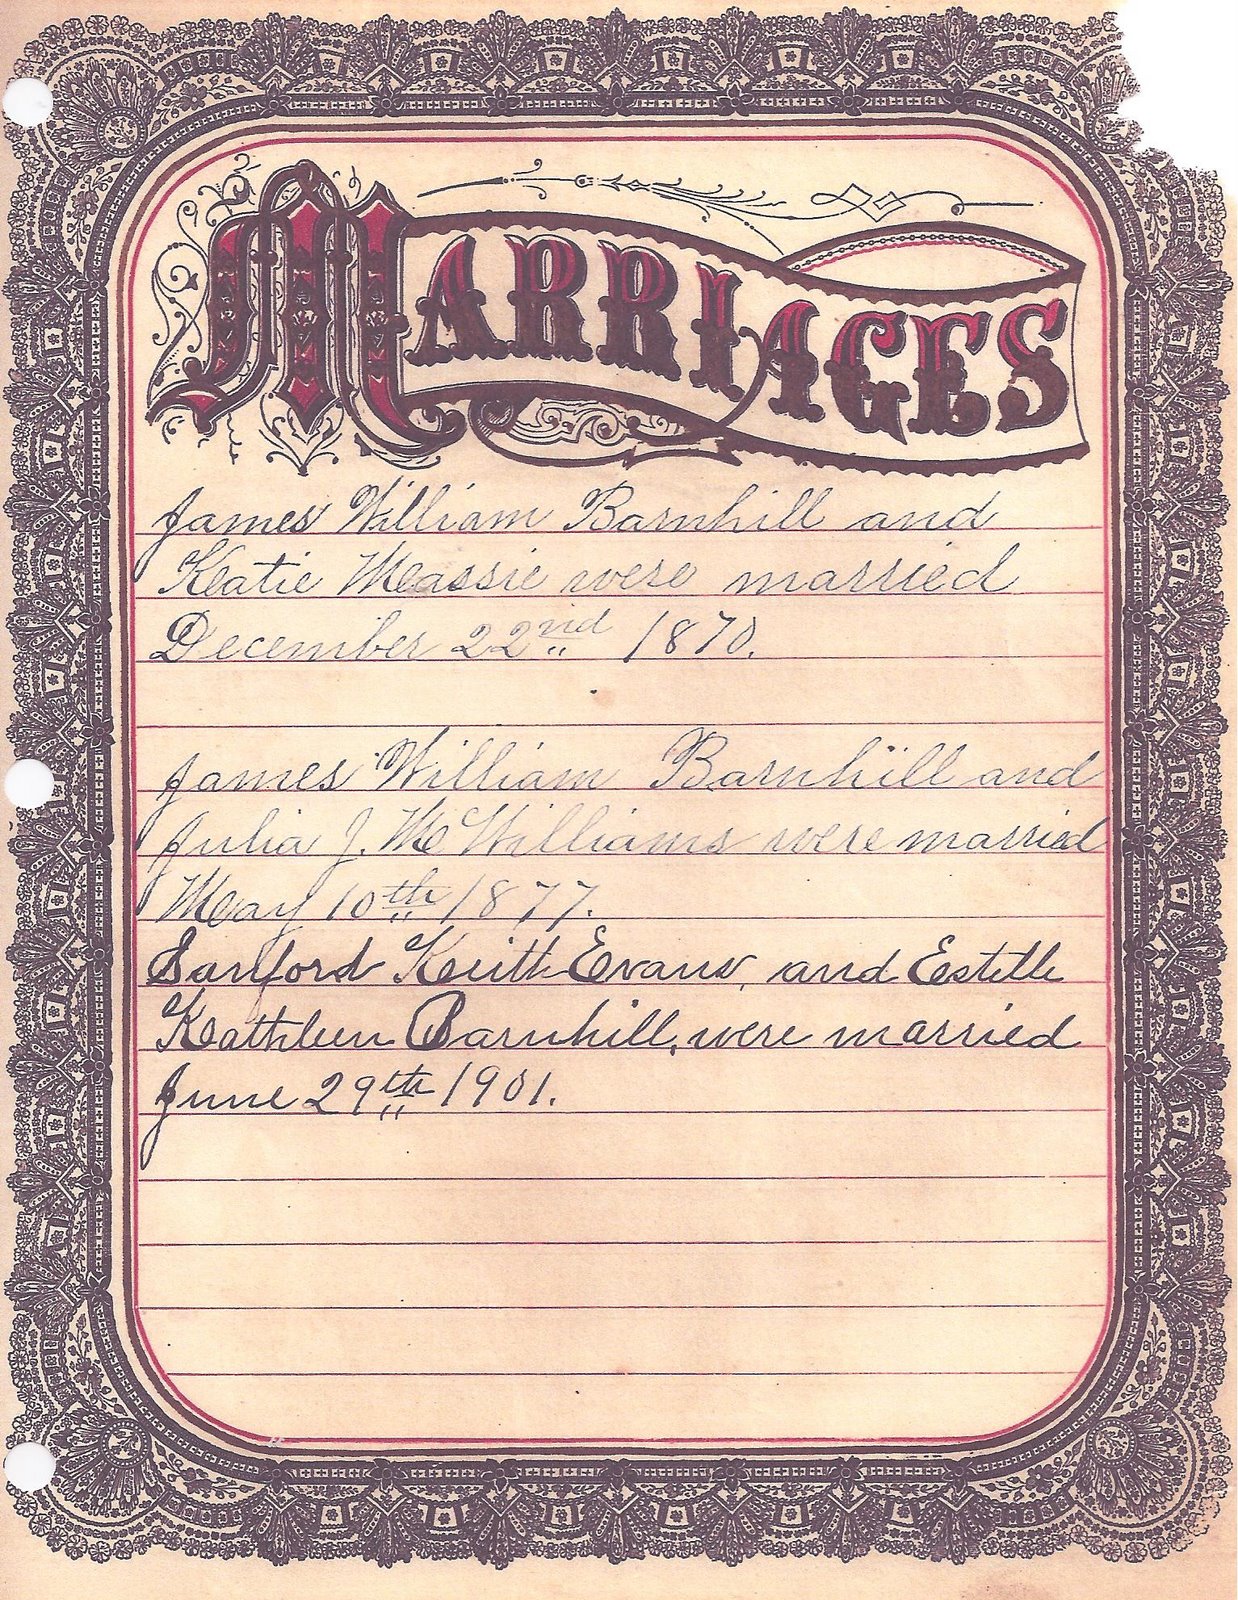 MARRIAGES
James William Barnhill and
Katie Massie were married
December 22nd 1870.
James William Barnhill and
Julia J. McWilliams were married
May 10th 1877.
Sanford Keith Evans, and Estelle
Kathleen Barnhill, were married
June 29th 1901.